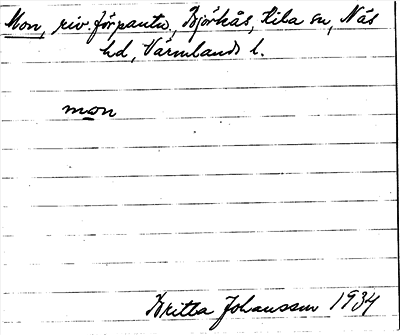 Mon, riv. förpantn, Björkås, Kila sn, Näs
hd, Värmlands l.
mon
Britta Johansson 1934